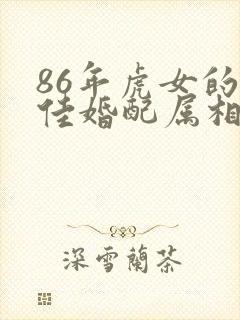 86年虎女的
佳婚配属相
深雪蘭茶